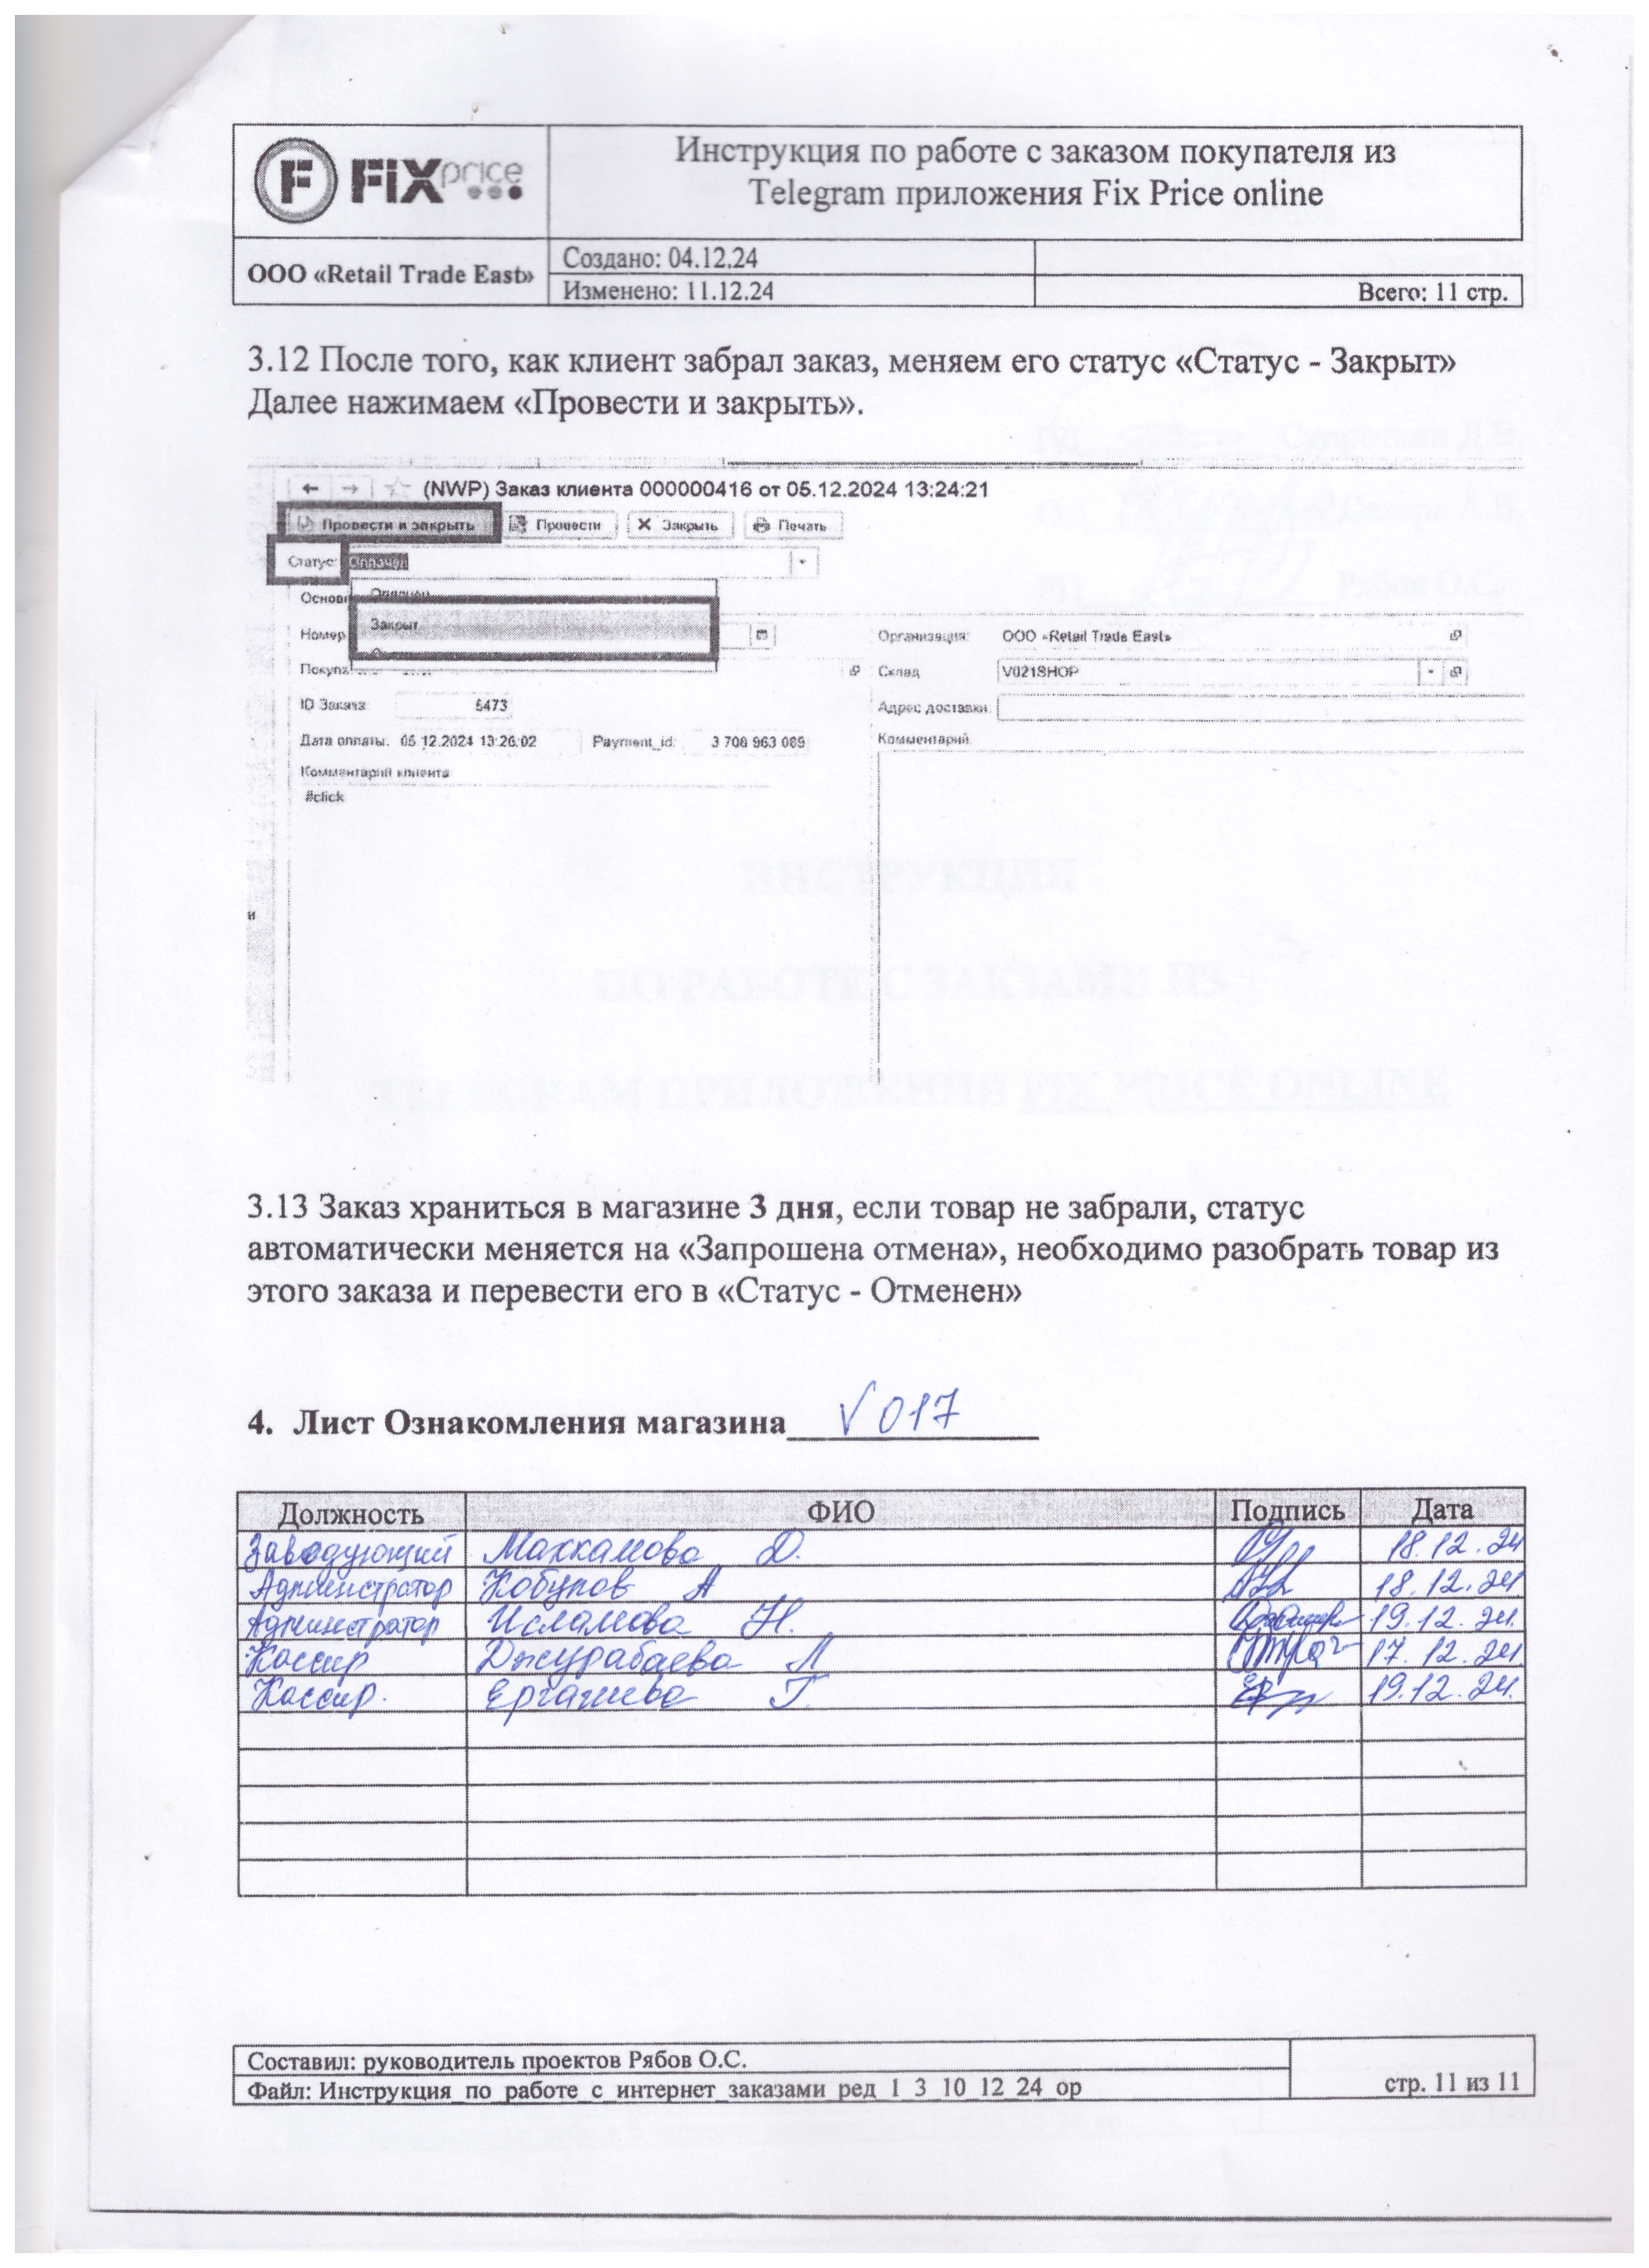 F FIXprice
Инструкция по работе с заказом покупателя из
Telegram приложения Fix Price online
ООО «Retail Trade East»
Создано: 04.12.24
Изменено: 11.12.24
Всего: 11 стр.
3.12 После того, как клиент забрал заказ, меняем его статус «Статус - Закрыт»
Далее нажимаем «Провести и закрыть».
(NWP) Заказ клиента 000000416 от 05.12.2024 13:24:21
Провести и закрыть Провести Закрыть Печать
Статус: Оплачен
Закрыт
Организация: ООО «Retail Trade East»
Склад V021SHOP
ID Заказа: 5473
Адрес доставки:
Дата оплаты: 05.12.2024 13:26:02 Payment_id: 3 708 963 089
Комментарий
Комментарий клиента
#click
и
3.13 Заказ храниться в магазине 3 дня, если товар не забрали, статус
автоматически меняется на «Запрошена отмена», необходимо разобрать товар из
этого заказа и перевести его в «Статус - Отменен»
4. Лист Ознакомления магазина V 017
Должность ФИО Подпись Дата
Заведующий Маккамова Д. 18.12.24
Администратор А 18.12.24
Администратор Исламова Н. 19.12.24.
Кассир Джурабаева Л 17.12.24
Кассир. Ергашева Г. 19.12.24.
Составил: руководитель проектов Рябов О.С.
Файл: Инструкция_по_работе_с_интернет_заказами_ред_1_3_10_12_24_ор
стр. 11 из 11